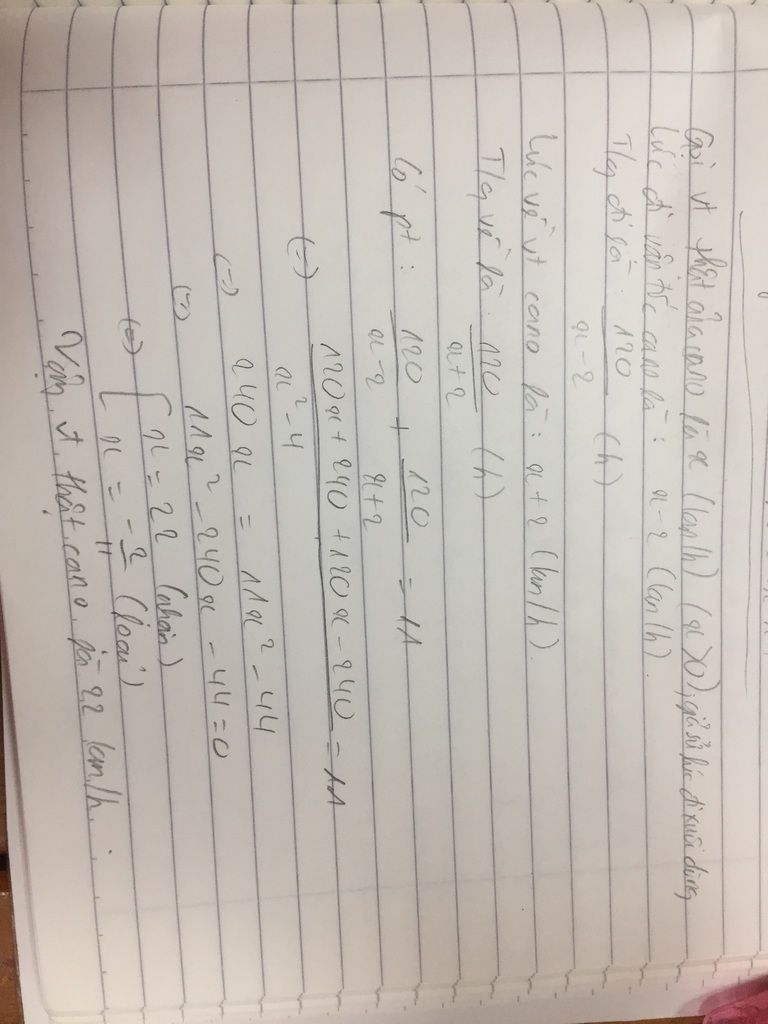 Gọi vt thật của cano là x (km/h) (x>0), giả sử lúc đi xuôi dòng
Lúc đi vận tốc cano là: x-2 (km/h)
T/g đi là: 120/(x-2) (h)
Lúc về vt cano là: x+2 (km/h).
T/g về là: 120/(x+2) (h)
Có pt: 120/(x-2) + 120/(x+2) = 11
(=) (120x+240+120x-240)/(x²-4) = 11
(=) 240x = 11x²-44
(=) 11x²-240x-44=0
(=) [ x=22 (nhận)
x = -2/11 (loại)
Vận vt thật cano là 22 km/h.